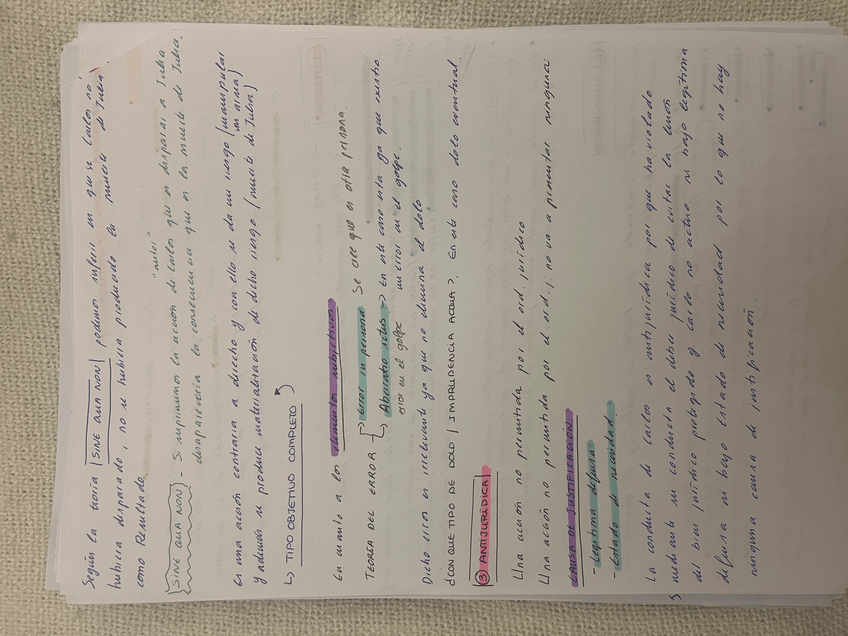 Según la teoría |SINE QUA NON| podemos inferir en que si Carlos no
hubiera disparado, no se hubiera producido la muerte de Julia
como Resultado.
"mutei"
SINE QUA NON - Si suprimimos la acción de Carlos que es disparar a Julia
desaparecería la consecuencia que es la muerte de Julia.
Es una acción contraria a derecho y con ello se da un riesgo (manipular
un arma)
y además se produce materialización de dicho riesgo (muerte de Julia)
↳ TIPO OBJETIVO COMPLETO
En cuanto a los elementos subjetivos
TEORÍA DEL ERROR → Error in persona Se cree que es otra persona.
↳ Aberratio ictus → En este caso esta ya que existe
error en el golpe un error en el golpe.
Dicho error es irrelevante ya que no elimina el dolo
¿CON QUE TIPO DE DOLO / IMPRUDENCIA ACTUA?. En este caso dolo eventual.
③ ANTIJURÍDICA
Una acción no permitida por el ord. jurídico
Una acción no permitida por el ord. j no va a presentar ninguna
CAUSA DE JUSTIFICACIÓN
- Legítima defensa
- Estado de necesidad
La conducta de Carlos es antijurídica por que ha violado
mediante su conducta el deber jurídico de evitar la lesión
del bien jurídico protegido y Carlos no actuo ni bajo legítima
defensa ni bajo estado de necesidad por lo que no hay
ninguna causa de justificación.